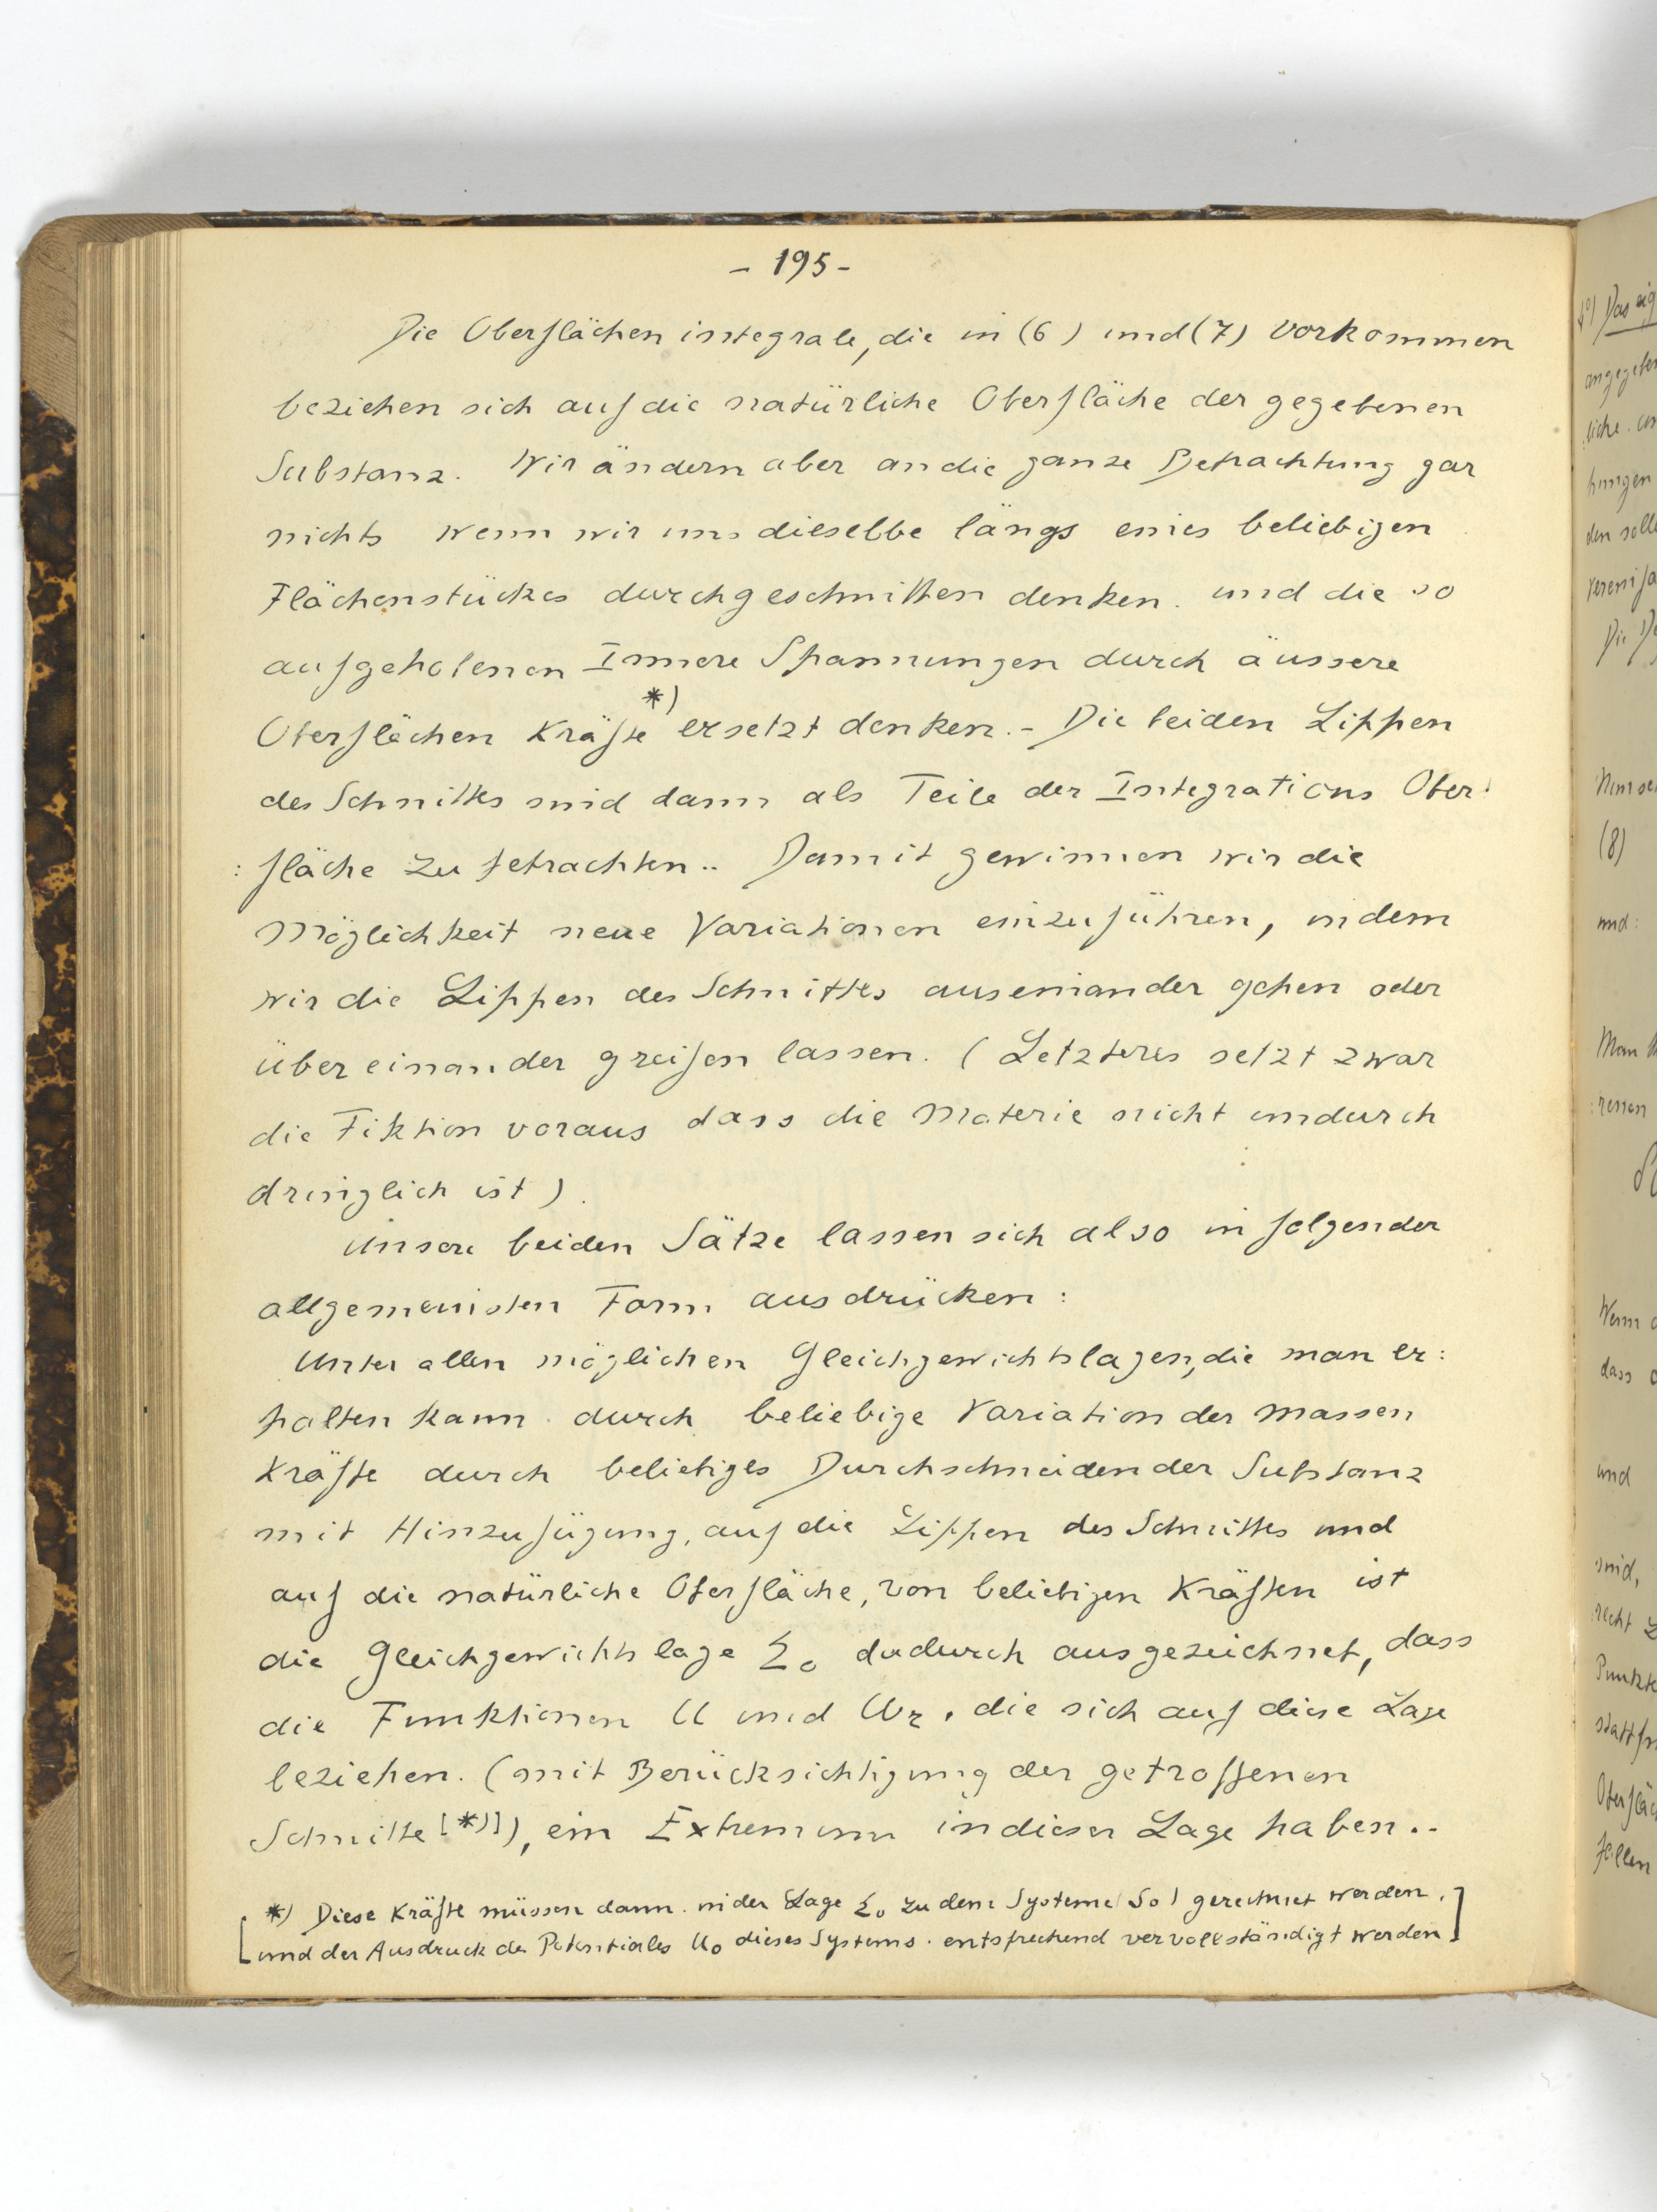 - 195 -
Die Oberflächen integrale, die in (6) und (7) vorkommen
beziehen sich auf die natürliche Oberfläche der gegebenen
Substanz. Wir ändern aber an die ganze Betrachtung gar
nichts wenn wir uns dieselbe längs eines beliebigen
Flächenstückes durchgeschnitten denken. und die so
aufgehobenen Innere Spannungen durch äussere
Oberflächen Kräfte *) ersetzt denken. - Die beiden Lippen
des Schnittes sind dann als Teile der Integrations Ober:
: fläche zu betrachten.. Damit gewinnen wir die
Möglichkeit neue Variationen einzuführen, indem
wir die Lippen des Schnittes auseinander gehen oder
über einander greifen lassen. (Letzteres setzt zwar
die Fiktion voraus dass die Materie nicht undurch
dringlich ist).
Unsere beiden Sätze lassen sich also in folgender
allgemeinsten Form ausdrücken:
Unter allen möglichen Gleichgewichtslagen, die man er:
halten kann durch beliebige Variation der Massen
Kräfte durch beliebiges Durchschneiden der Substanz
mit Hinzufügung, auf die Lippen des Schnittes und
auf die natürliche Oberfläche, von beliebigen Kräften ist
die Gleichgewichtslage Σ₀ dadurch ausgezeichnet, dass
die Funktionen U und Ur, die sich auf diese Lage
beziehen. (mit Berücksichtigung der getroffenen
Schnitte [*)]), ein Extremum in dieser Lage haben..
*) Diese Kräfte müssen dann in der Lage Σ₀ zu dem Systeme (S₀) gerechnet werden.
[und der Ausdruck des Potentiales U₀ dieses Systems. entsprechend vervollständigt werden]
(8)
und:
und